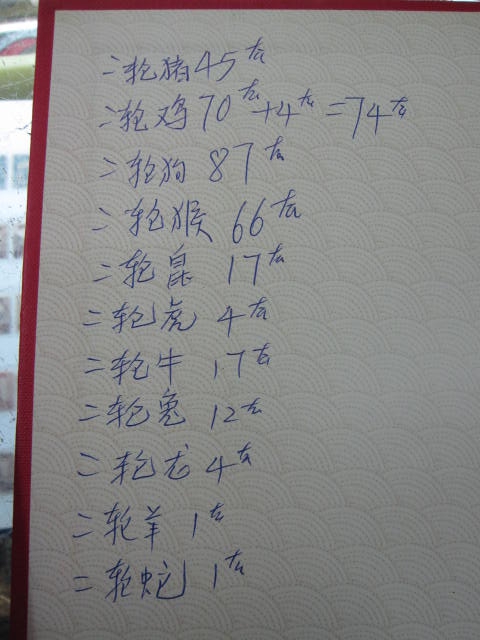 二轮猪45大
二轮鸡70大+4大=74大
二轮狗87大
二轮猴66大
二轮鼠17大
二轮虎4大
二轮牛17大
二轮兔12大
二轮龙4大
二轮羊1大
二轮蛇1大